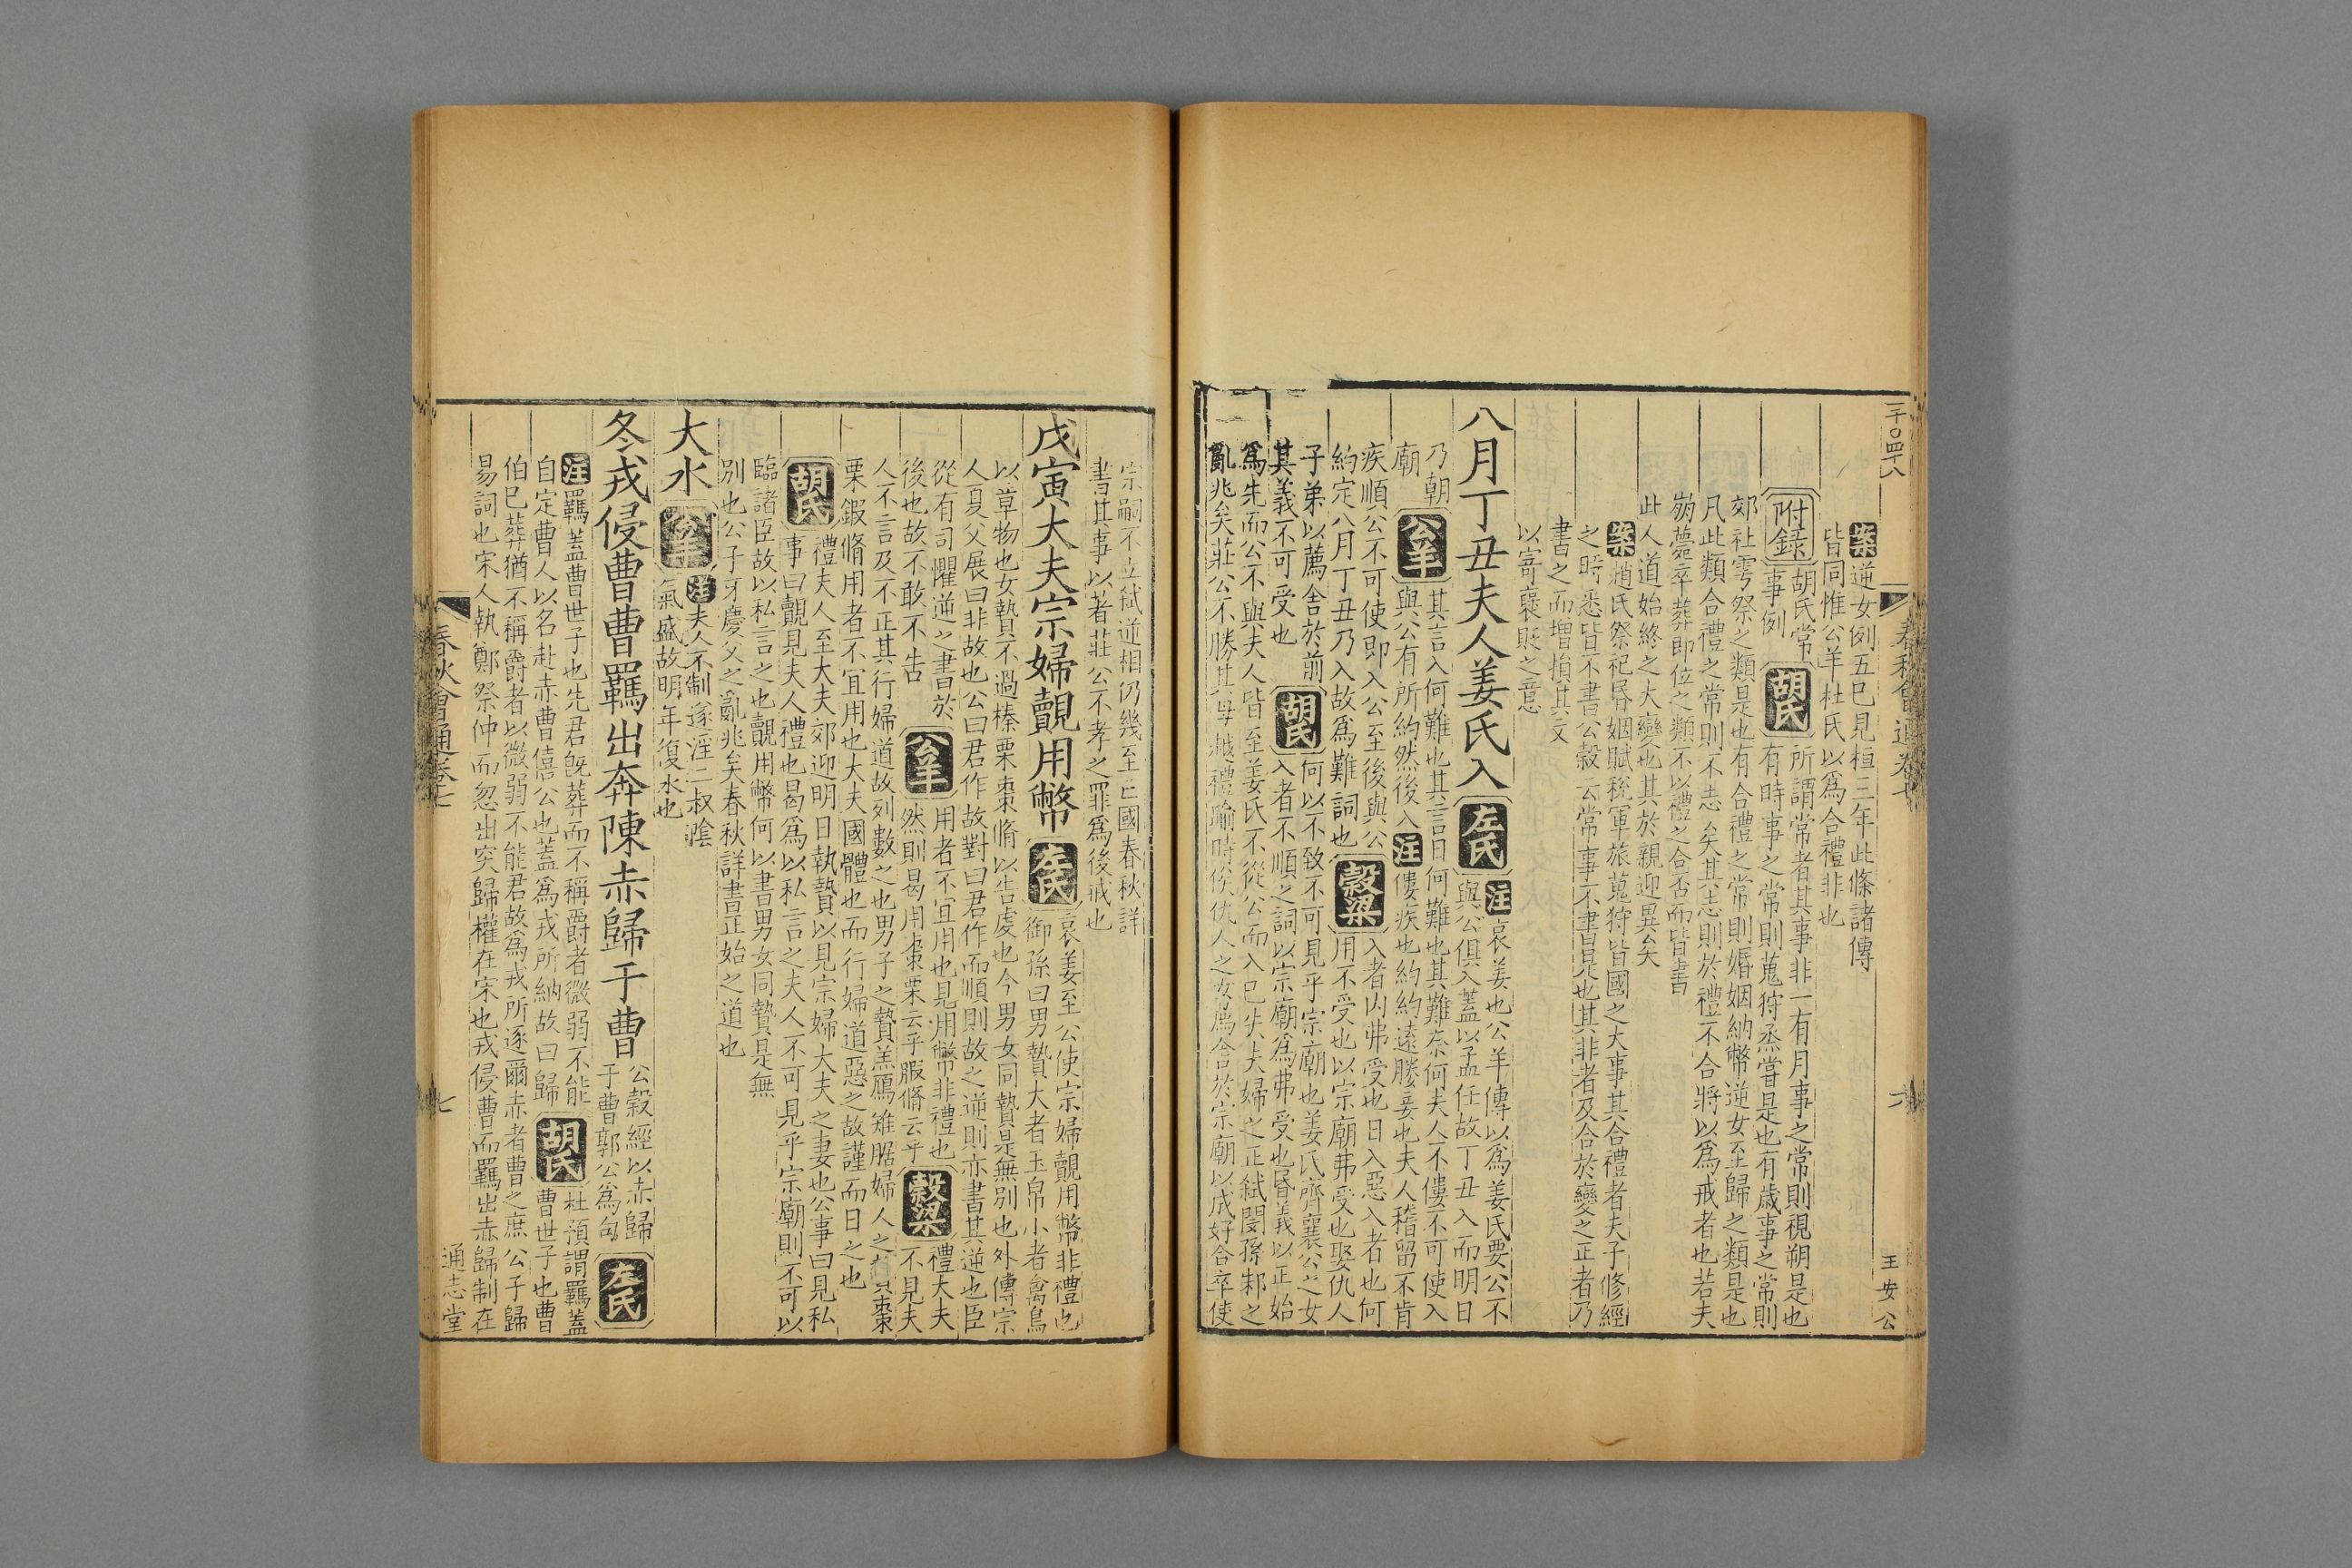 一千〇四十八
春秋會通卷七
六
王安公
案逆女例五已見桓三年此條諸傳
皆同惟公羊杜氏以為合禮非也
附録
胡氏常
事例
胡氏
所謂常者其事非一有月事之常則視朔是也
有時事之常則蒐狩烝嘗是也有歲事之常則
郊社雩祭之類是也有合禮之常則婚姻納幣逆女至歸之類是也
凡此類合禮之常則不志矣其志則於禮不合將以為戒者也若夫
崩薨卒葬即位之類不以禮之合否而皆書
此人道始終之大變也其於親迎異矣
案趙氏祭祀昏姻賦稅軍旅蒐狩皆國之大事其合禮者夫子修經
之時悉皆不書公穀云常事不書是也其非者及合於變之正者乃
書之而增損其文
以寄襃貶之意
八月丁丑夫人姜氏入
左氏
注哀姜也公羊傳以為姜氏要公不
與公俱入蓋以孟任故丁丑入而明日
乃朝
廟
公羊
其言入何難也其言日何難也其難奈何夫人不僂不可使入
與公有所約然後入注僂疾也約約遠媵妾也夫人稽留不肯
疾順公不可使即入公至後與公
約定八月丁丑乃入故為難詞也
穀梁
入者內弗受也日入惡入者也何
用不受也以宗廟弗受也娶仇人
子弟以薦舍於前
其義不可受也
胡氏
何以不致不可見乎宗廟也姜氏齊襄公之女
入者不順之詞以宗廟為弗受也昏義以正始
為先而公不與夫人皆至姜氏不從公而入已失夫婦之正弑閔孫邾之
亂兆矣莊公不勝其母越禮踰時俟仇人之女薦舍於宗廟以成好合卒使
宗嗣不立弑逆相仍幾至亡國春秋詳
書其事以著莊公不孝之罪為後戒也
戊寅大夫宗婦覿用幣
左氏
哀姜至公使宗婦覿用幣非禮也
御孫曰男贄大者玉帛小者禽鳥
以章物也女贄不過榛栗棗脩以告虔也今男女同贄是無別也外傳宗
人夏父展曰非故也公曰君作故對曰君作而順則故之逆則亦書其逆也臣
從有司懼逆之書於
後也故不敢不告
公羊
用者不宜用也見用幣非禮也
然則曷用棗栗云乎腶脩云乎
穀梁
禮大夫
不見夫
人不言及不正其行婦道故列數之也男子之贄羔鴈雉腒婦人之贄棗
栗鍛脩用者不宜用也大夫國體也而行婦道惡之故謹而日之也
胡氏
禮夫人至大夫郊迎明日執贄以見宗婦大夫之妻也公事曰見私
事曰覿見夫人禮也曷為以私言之夫人不可見乎宗廟則不可以
臨諸臣故以私言之也覿用幣何以書男女同贄是無
別也公子牙慶父之亂兆矣春秋詳書正始之道也
大水
公羊
注夫人不制遂淫二叔陰
氣盛故明年復水也
冬戎侵曹曹羈出奔陳赤歸于曹
公穀經以赤歸
于曹郭公為句
左氏
注羈蓋曹世子也先君旣葬而不稱爵者微弱不能
自定曹人以名赴赤曹僖公也蓋為戎所納故曰歸
胡氏
杜預謂羈蓋
曹世子也曹
伯已葬猶不稱爵者以微弱不能君故為戎所逐爾赤者曹之庶公子歸
易詞也宋人執鄭祭仲而忽出突歸權在宋也戎侵曹而羈出赤歸制在
春秋會通卷七
七
通志堂